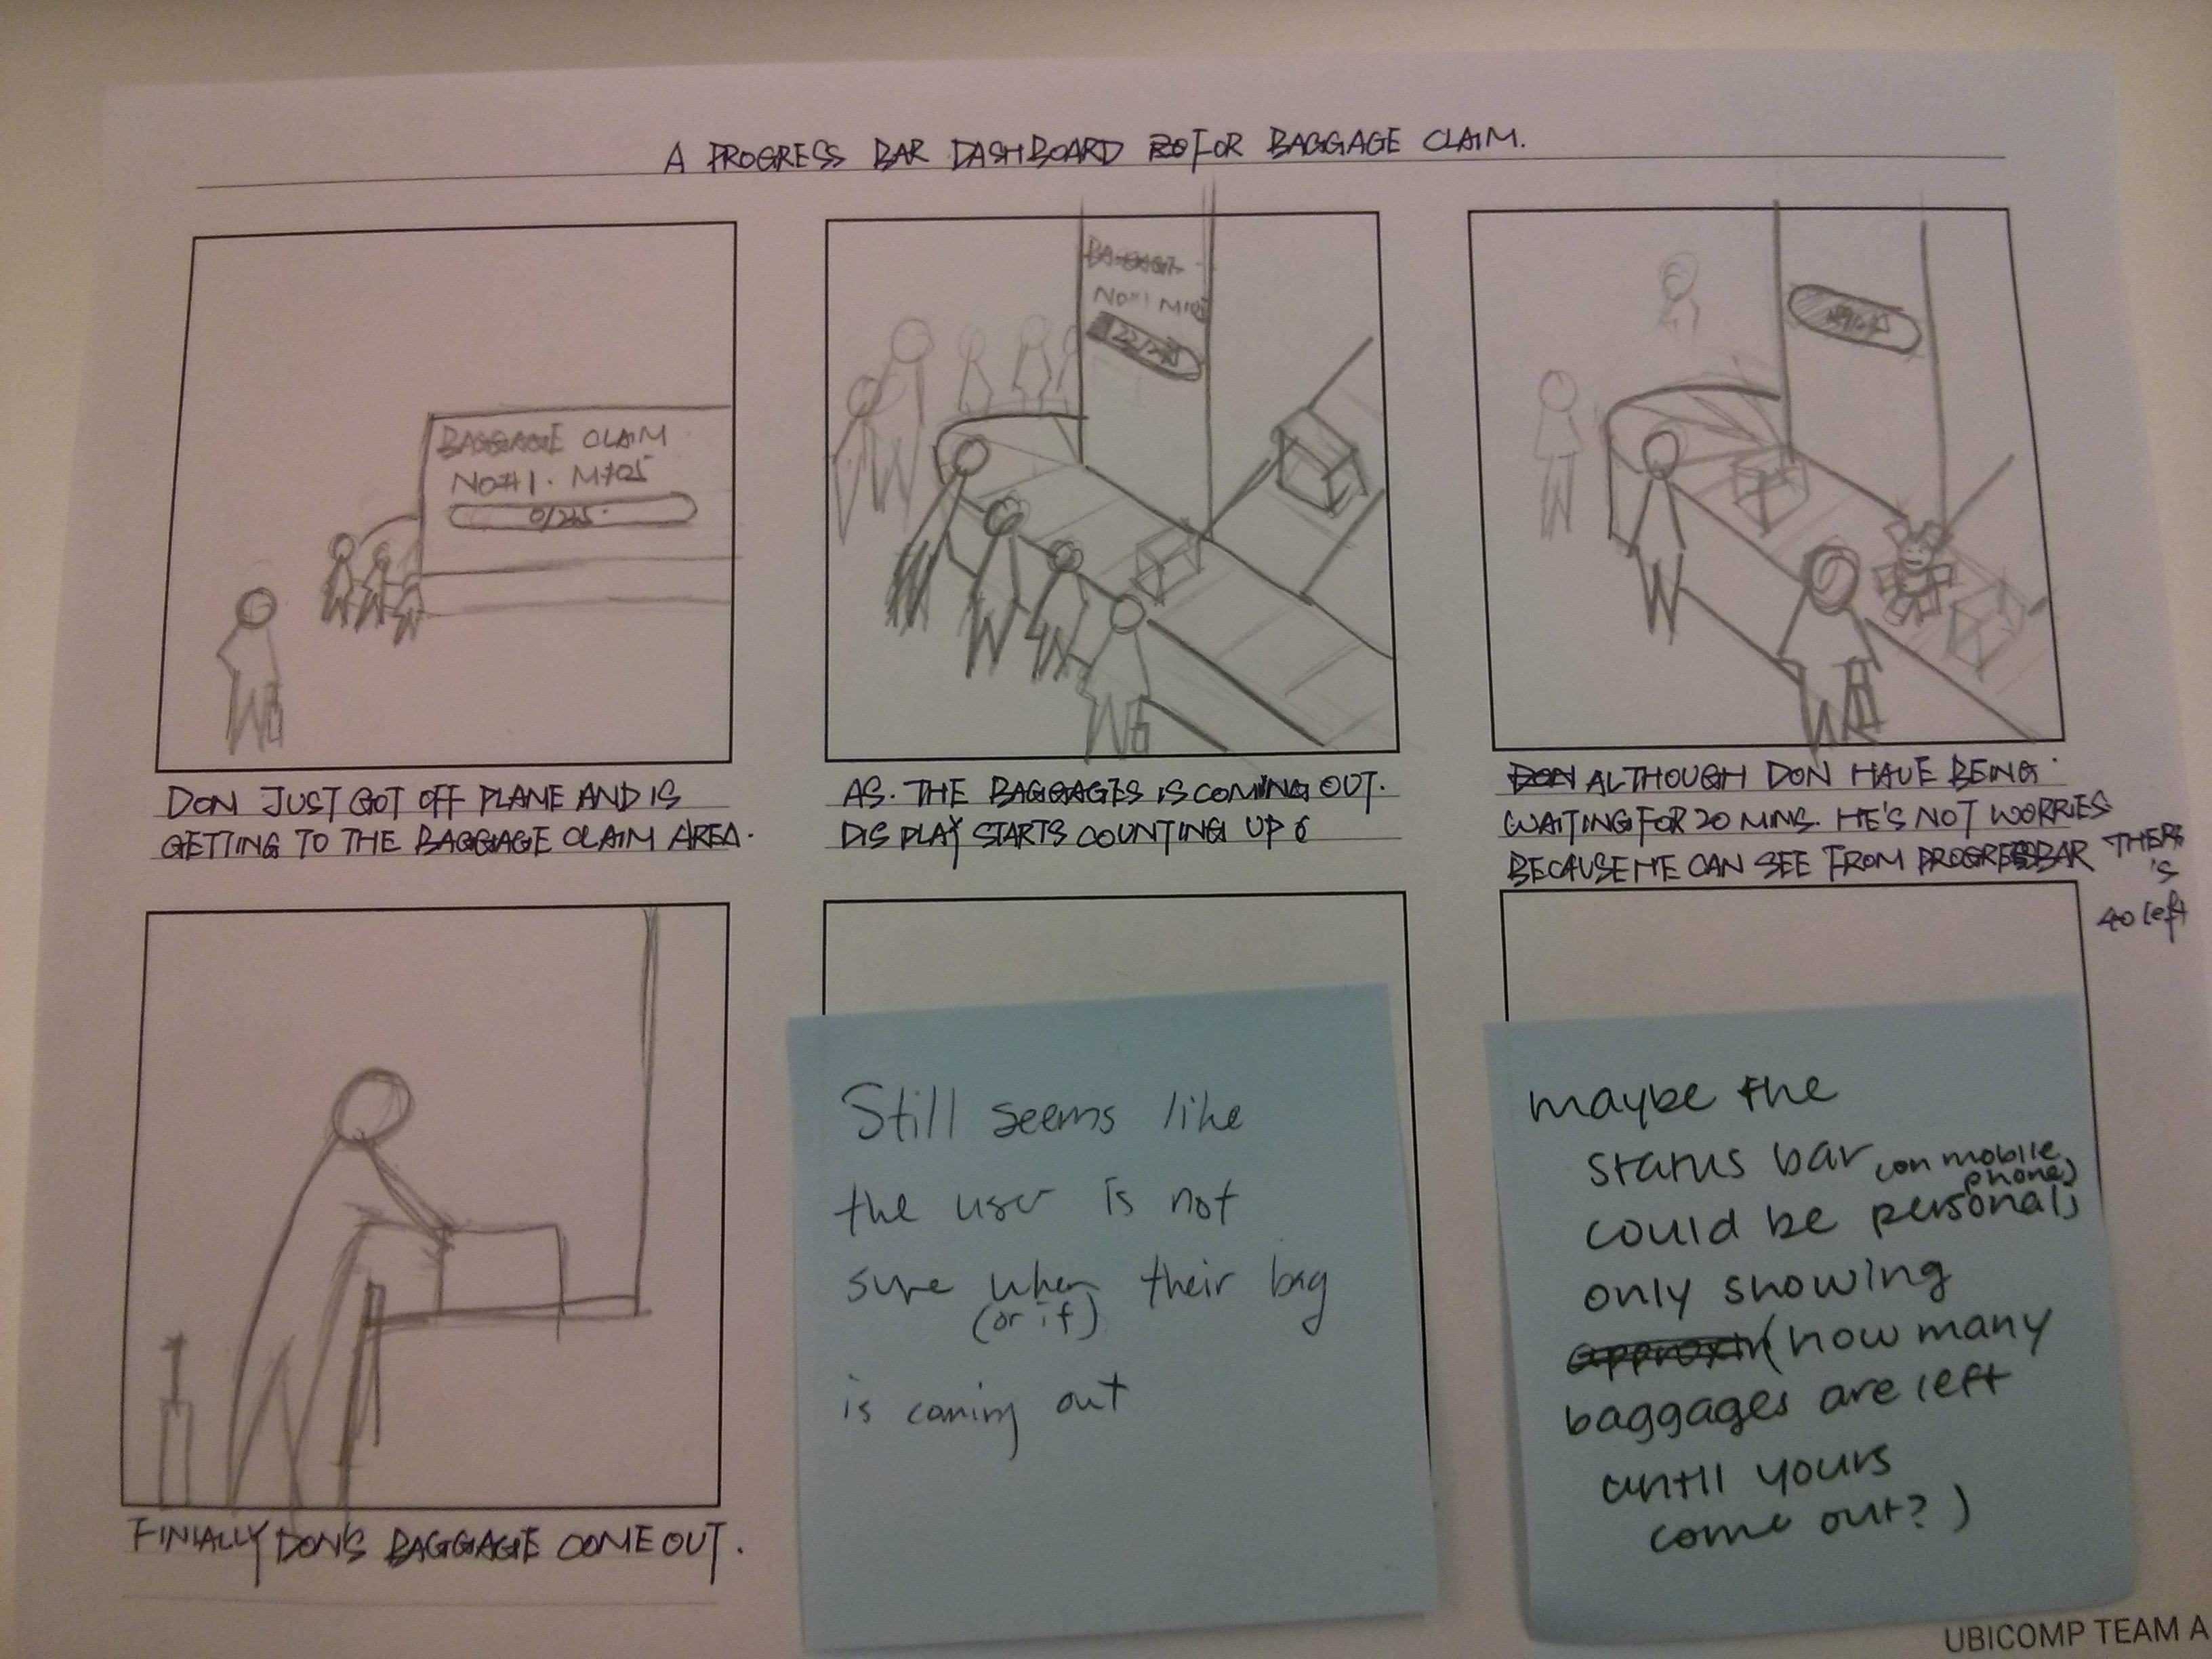 A PROGRESS BAR DASHBOARD FOR BAGGAGE CLAIM.
BAGGAGE CLAIM
NO#1.
DON JUST GOT OFF PLANE AND IS
GETTING TO THE BAGGAGE CLAIM AREA.
NO#1
AS. THE BAGGAGES IS COMING OUT.
DISPLAY STARTS COUNTING UP
DON ALTHOUGH DON HAVE BEING
WAITING FOR 20 MINS. HE'S NOT WORRIES
BECAUSE HE CAN SEE FROM PROGRESSBAR THERE
'S
40 left
FINIALLY DON'S BAGGAGE COME OUT.
Still seems like
the user is not
sure when their bag
(or if)
is coming out
maybe the
status bar (on mobile
phone)
could be personal;
only showing
(how many
baggages are left
until yours
come out?)
UBICOMP TEAM A